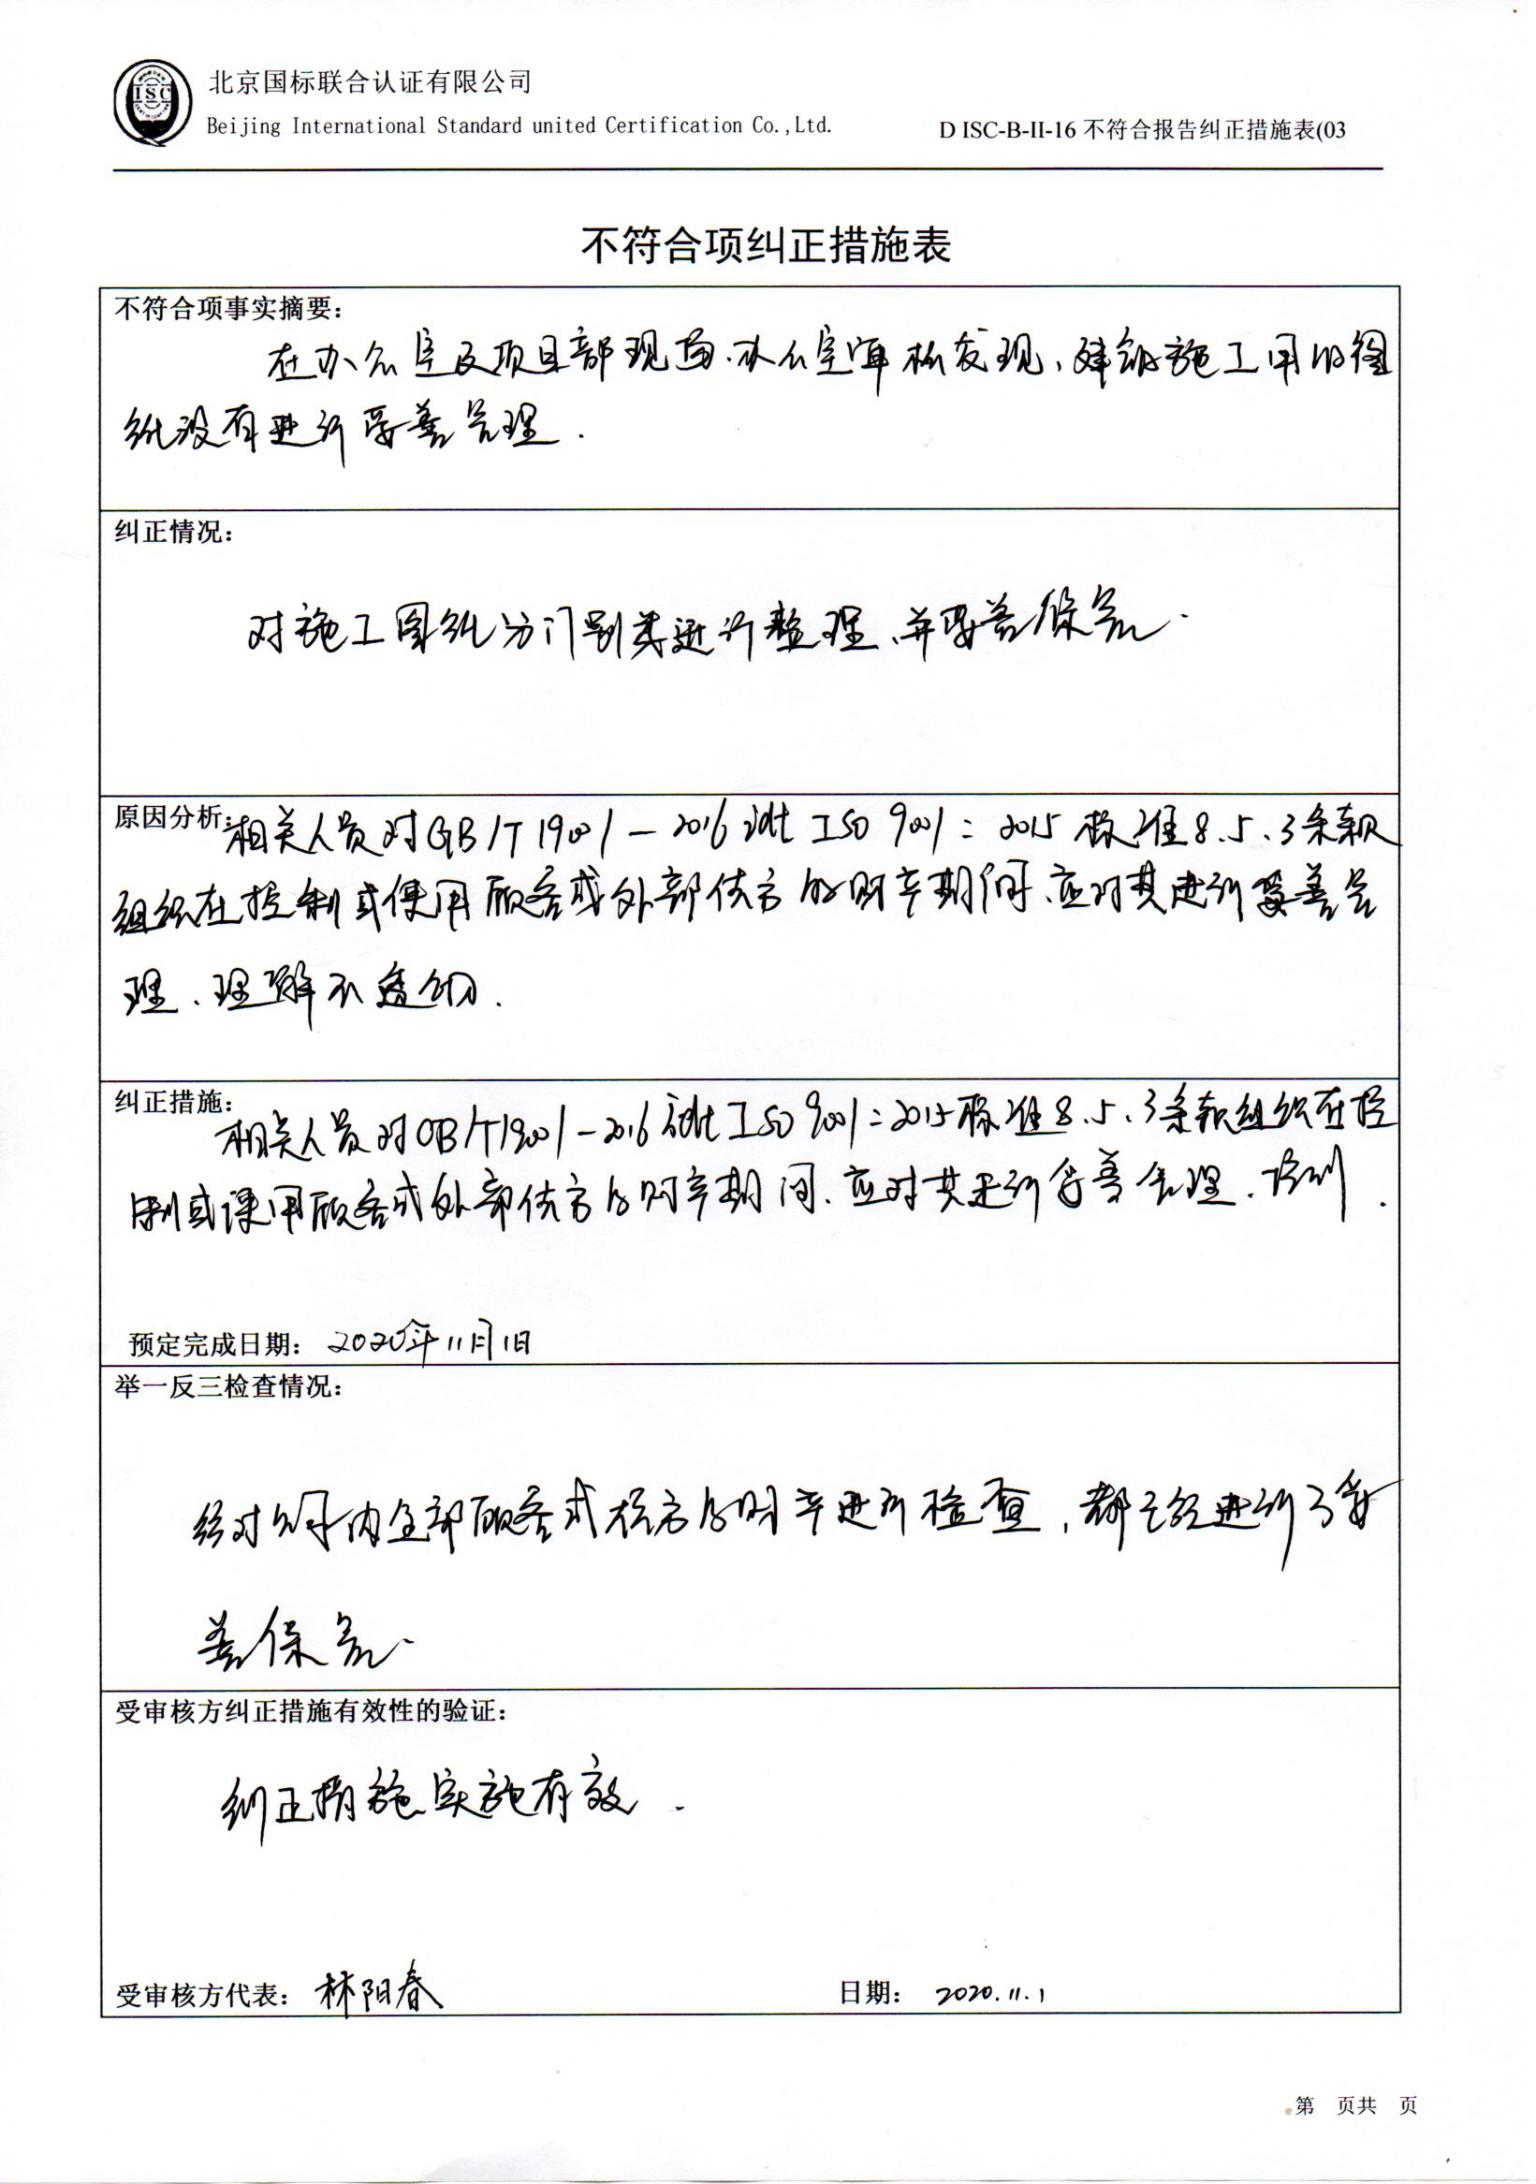 ISC
北京国标联合认证有限公司
Beijing International Standard united Certification Co.,Ltd.
D ISC-B-II-16 不符合报告纠正措施表(03
不符合项纠正措施表
不符合项事实摘要：
在办公室及项目部现场、办公室审核发现、建筑施工用的图
纸没有进行妥善管理.
纠正情况：
对施工图纸分门别类进行整理、并妥善保管.
原因分析：相关人员对GB/T 19001-2016 idt ISO 9001:2015 标准8.5.3条款
组织在控制或使用顾客或外部供方的财产期间、应对其进行妥善管
理、理解不透彻.
纠正措施：
相关人员对GB/T19001-2016 idt ISO 9001:2015标准8.5.3条款组织在控
制或使用顾客或外部供方的财产期间、应对其进行妥善管理、培训.
预定完成日期：2020年11月1日
举一反三检查情况：
经对公司内全部顾客或供方的财产进行检查，都已经进行了妥
善保管.
受审核方纠正措施有效性的验证：
纠正措施实施有效.
受审核方代表：林阳春 日期：2020.11.1
第 页共 页